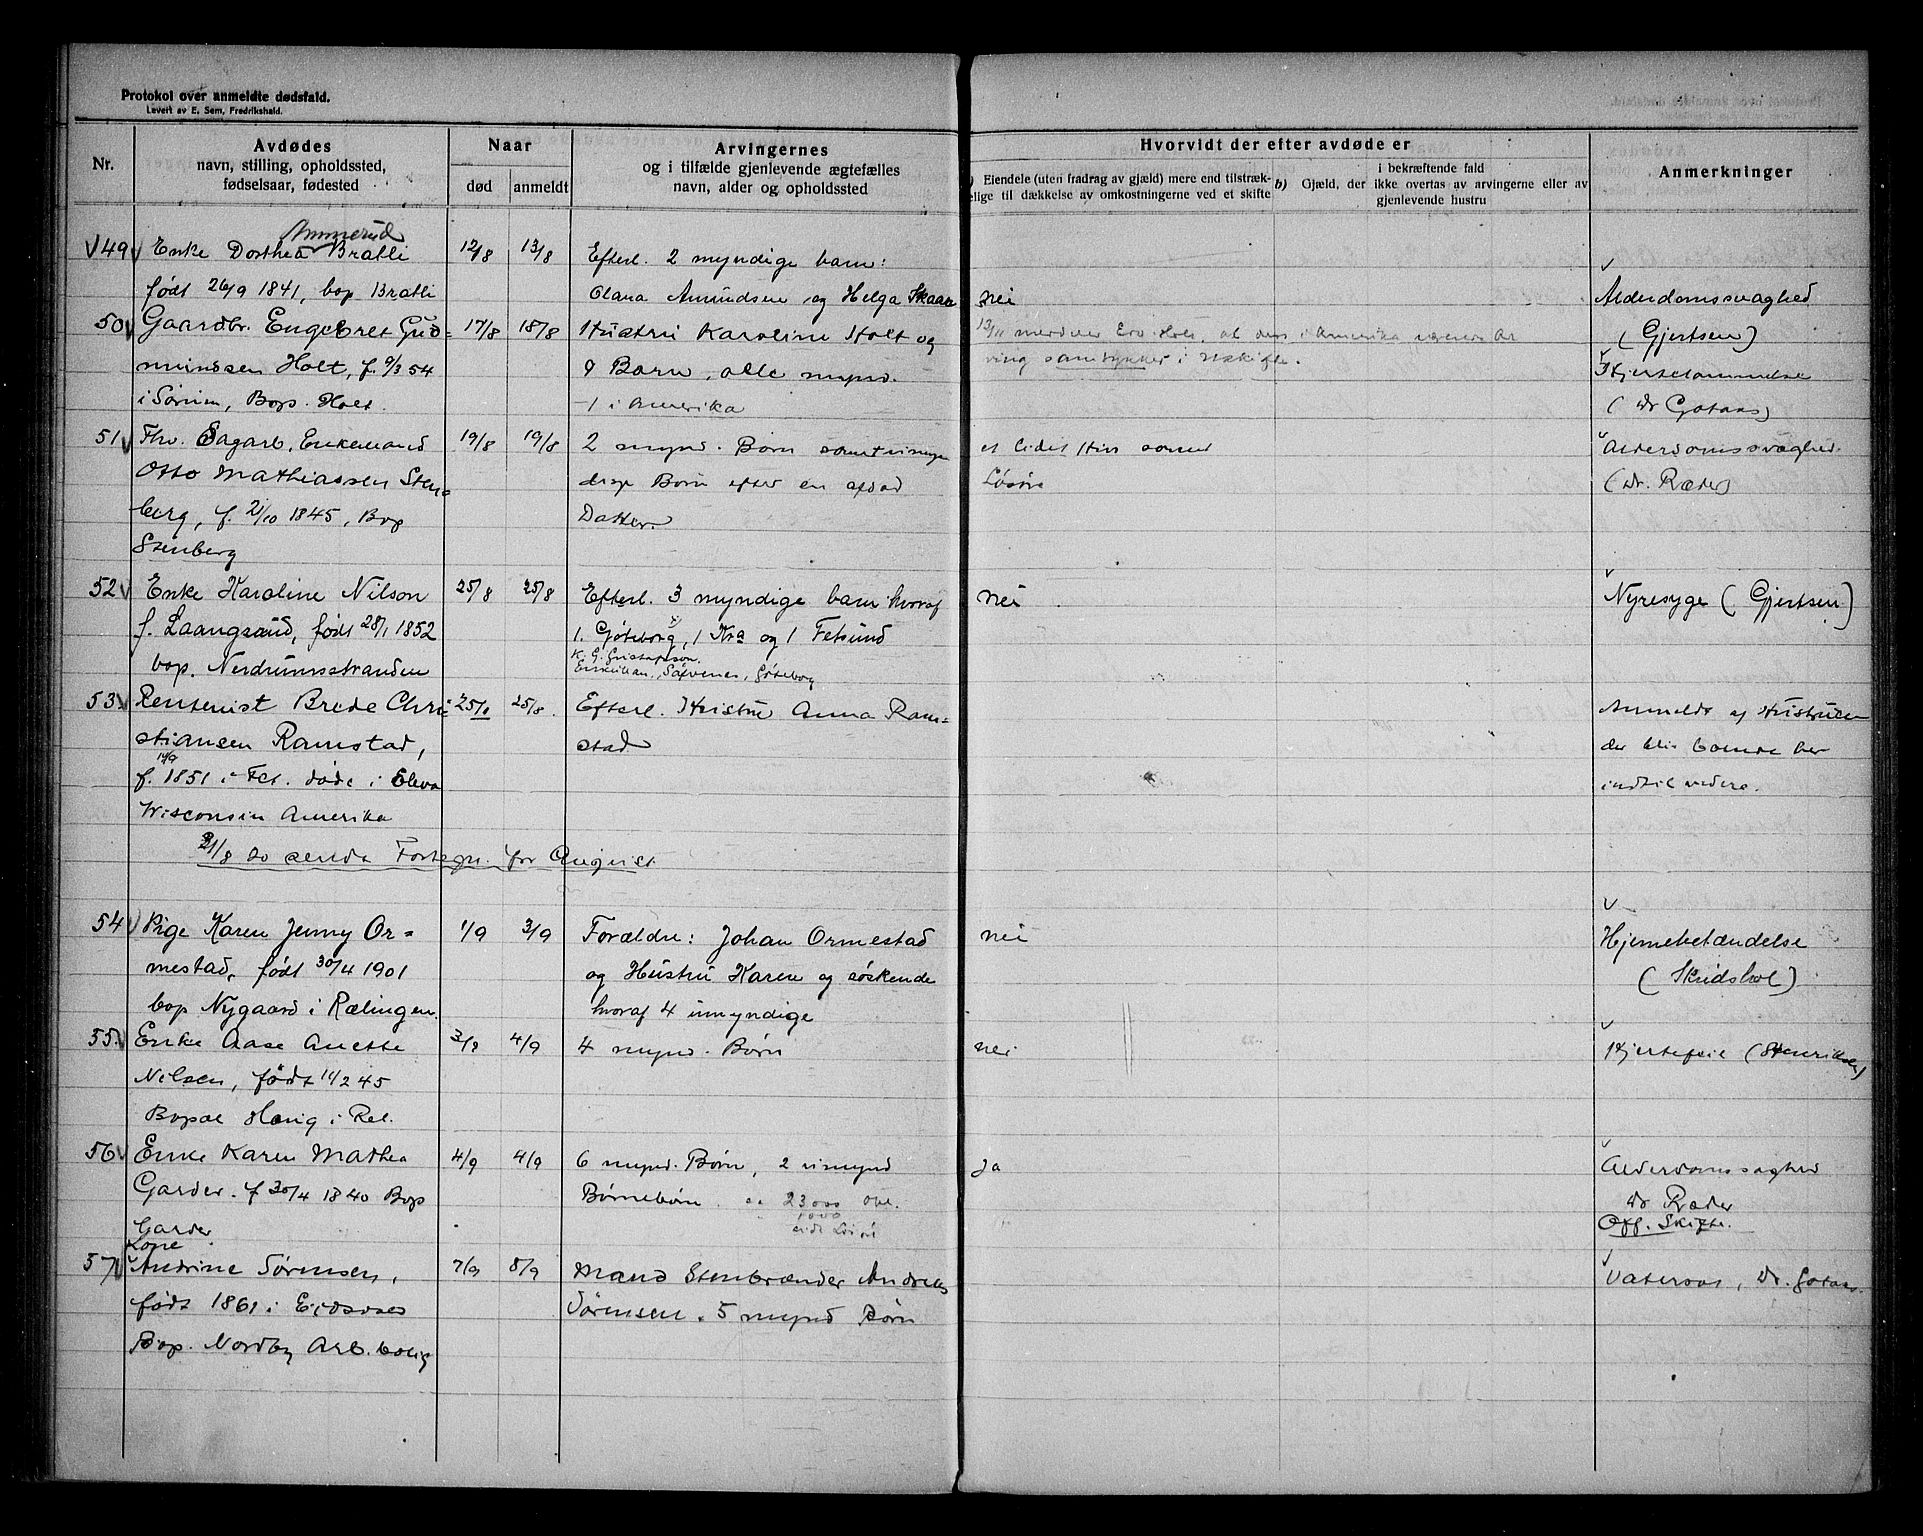 Protokol over anmeldte dødsfald.
Levert av E. Sem, Fredrikshald.
Nr.
Avdødes
navn, stilling, opholdssted,
fødselsaar, fødested
Naar
død
anmeldt
Arvingernes
og i tilfælde gjenlevende ægtefælles
navn, alder og opholdssted
Hvorvidt der efter avdøde er
Eiendele (uten fradrag av gjæld) mere end tilstræk-
elige til dækkelse av omkostningerne ved et skifte
b) Gjæld, der
i bekræftende fald
ikke overtas av arvingerne eller av
gjenlevende hustru
Anmerkninger
49
Ammerud
Enke Dorthea Bratli
født 26/9 1841, bop Bratli
12/8
13/8
Efterl. 2 myndige barn:
Olana Amundsen og Helga Skaar
nei
Alderdomssvaghed
(Gjertsen)
50
Gaardbr. Engebret Gud-
mundsen Holt, f. 9/3 54
i Sørum, Bop. Holt.
17/8
18/8
Hustru Karoline Holt og
9 Barn, alle mynd.
- 1 i Amerika
13/11 at i Amerika
ring samtykker i Uskifte.
Hjertelammelse
(Dr Gotaas)
51
Fhv. Sagarb. Enkemand
Otto Mathiassen Sten-
berg, f. 21/10 1845, Bop
Stenberg
19/8
19/8
2 mynd. Børn samt umyn
dige Børn efter en afdød
Datter.
et lidet Hus samt
Løsøre
Alderdomssvaghed.
(Dr. Ræder)
52
Enke Karoline Nilson
f. Laangsund, født 28/1 1852
bop. Nerdrumsstranden
25/8
25/8
Efterl. 3 myndige barn hvoraf
1. Gøteborg, 1 Kra og 1 Fetsund
K. G. Gustafsson.
Säfvenäs, Gøteborg
nei
Nyresyge (Gjertsen)
53
Rentenist Brede Chri-
stiansen Ramstad,
f. 14/9 1851 i Fet. døde i Eleva
Wisconsin Amerika
25/8.
Efterl. Hustru Anna Ram-
stad
Anmeldt af Hustruen
der blir boende her
indtil videre.
31/8 do sendt Fortegn. for August
54
Pige Karen Jenny Or-
mestad, født 30/4 1901
bop Nygaard i Rælingen.
1/9
3/9
Forældre: Johan Ormestad
og Hustru Karen og søskende
hvoraf 4 umyndige
nei
Hjernebetændelse
(Skridshol)
55.
Enke Aase Anette
Nilsen, født 14/2 45
Bopæl Haug i Rel.
3/9
4/9
4 mynd. Børn
nei
Hjertefeil (Henriksen)
56
Enke Karen Mathea
Garder. f 30/4 1840 Bop
Garder
4/9
4/9
6 mynd. Børn, 2 umynd
Børnebørn. ca 23000 Obl.
1000
Løsøre
ja
Alderdomssaghed
Dr Ræder
Off. Skifte.
57
Kone
Andrine Sørensen,
født 1861 i Eidsvold
Bop. Nordby Arb.bolig
7/9
8/9
Mand Stenbrænder Andreas
Sørensen. 5 mynd Børn
Vatersot, Dr. Gotaas.